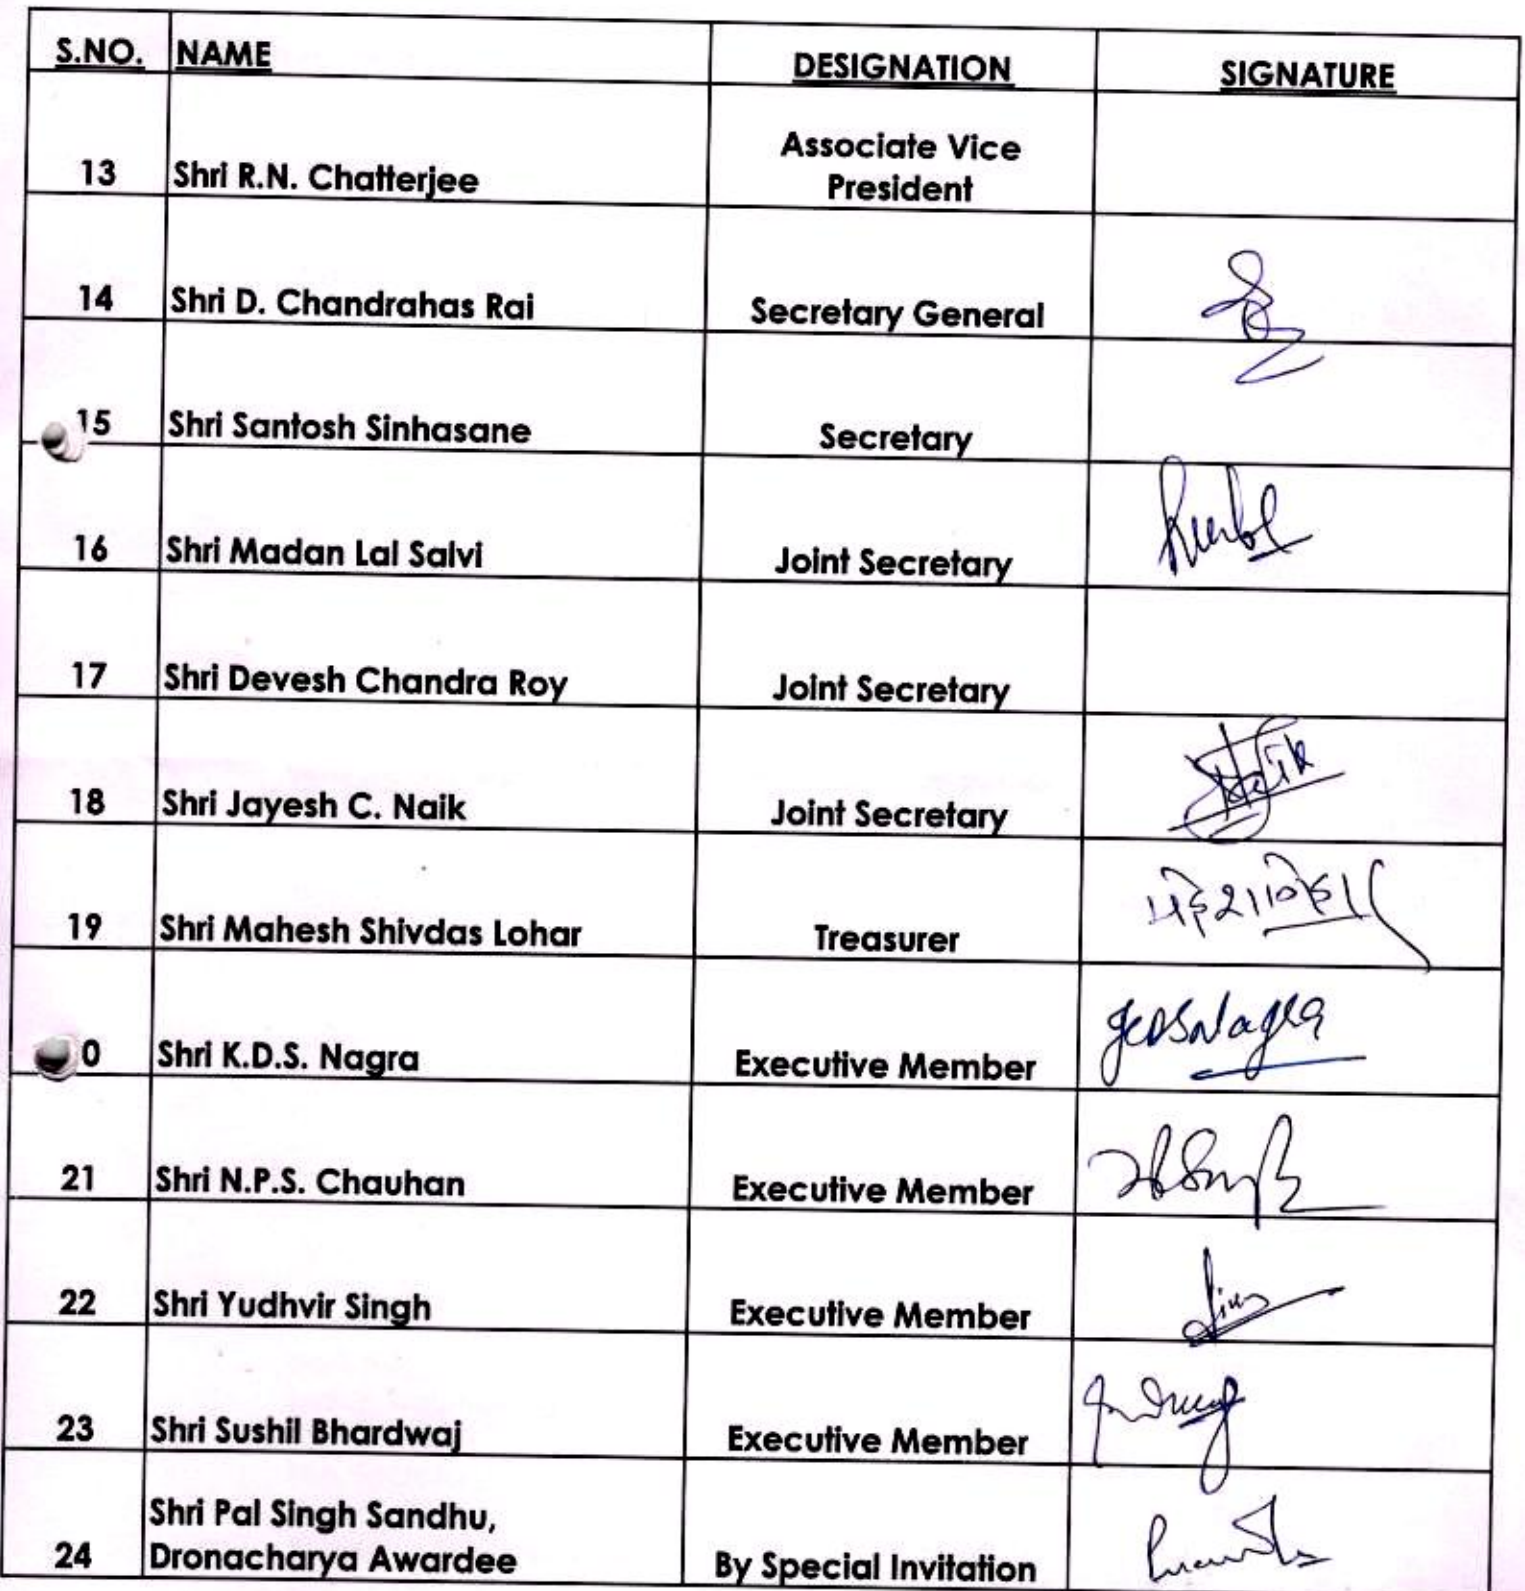 S.NO. NAME DESIGNATION SIGNATURE
13 Shri R.N. Chatterjee Associate Vice
President
14 Shri D. Chandrahas Rai Secretary General
15 Shri Santosh Sinhasane Secretary
16 Shri Madan Lal Salvi Joint Secretary
17 Shri Devesh Chandra Roy Joint Secretary
18 Shri Jayesh C. Naik Joint Secretary
19 Shri Mahesh Shivdas Lohar Treasurer
0 Shri K.D.S. Nagra Executive Member KDSNagra
21 Shri N.P.S. Chauhan Executive Member
22 Shri Yudhvir Singh Executive Member
23 Shri Sushil Bhardwaj Executive Member
Shri Pal Singh Sandhu,
24 Dronacharya Awardee By Special Invitation